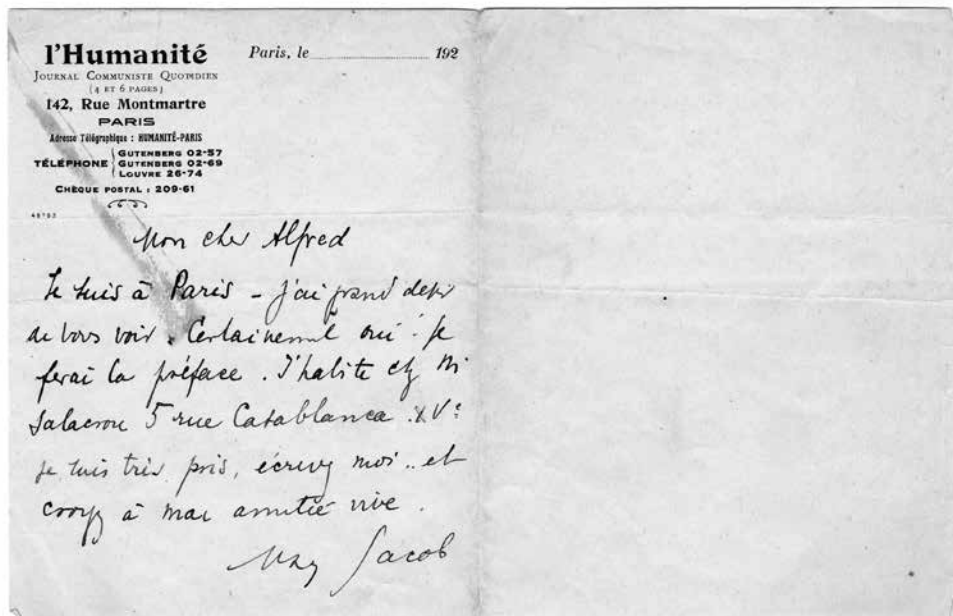 l'Humanité
Paris, le 192
JOURNAL COMMUNISTE QUOTIDIEN
(4 ET 6 PAGES)
142, Rue Montmartre
PARIS
Adresse Télégraphique : HUMANITÉ-PARIS
TÉLÉPHONE
GUTENBERG 02-57
GUTENBERG 02-69
LOUVRE 26-74
CHÈQUE POSTAL : 209-61
Mon cher Alfred
Je suis à Paris - j'ai grand desir
de vous voir. Certainement oui. je
ferai la préface. J'habite chez M
Salacrou 5 rue Casablanca. XVe
je suis très pris, écrivez moi.. et
croyez à mon amitié vive.
Max Jacob